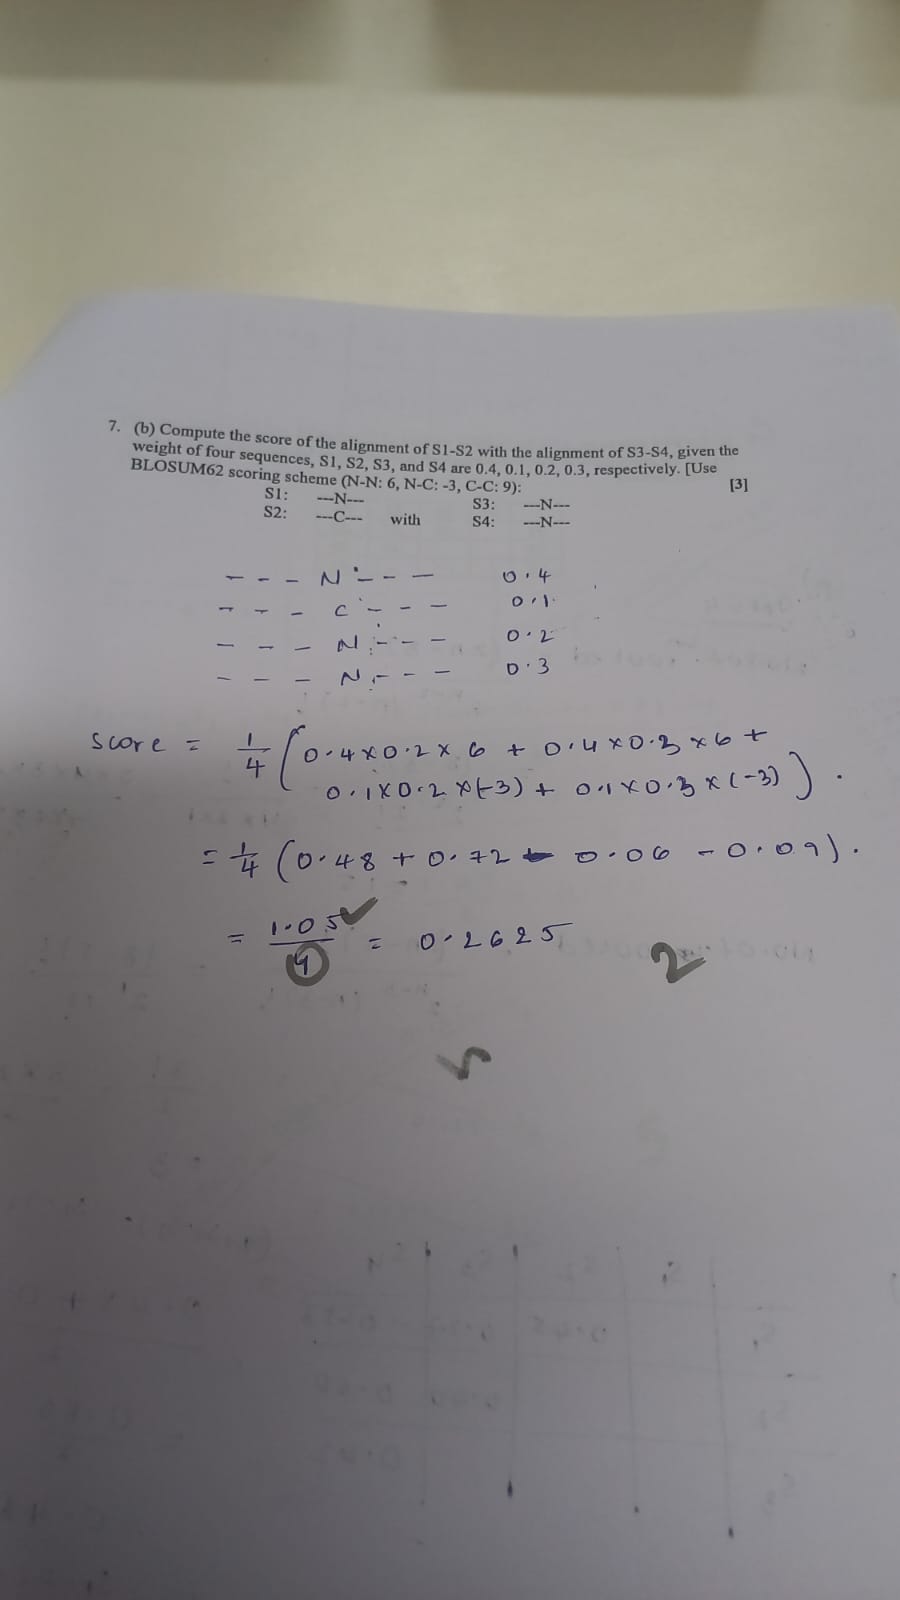 7. (b) Compute the score of the alignment of S1-S2 with the alignment of S3-S4, given the
weight of four sequences, S1, S2, S3, and S4 are 0.4, 0.1, 0.2, 0.3, respectively. [Use
BLOSUM62 scoring scheme (N-N: 6, N-C: -3, C-C: 9): [3]
S1: ---N--- S3: ---N---
S2: ---C--- with S4: ---N---
- - - N - - - 0.4
- - - C - - - 0.1
- - - N - - - 0.2
- - - N - - - 0.3
Score = 1/4 (0.4×0.2×6 + 0.4×0.3×6 +
0.1×0.2×(-3) + 0.1×0.3×(-3)).
= 1/4 (0.48 + 0.72 - 0.06 - 0.09).
= 1.05/4 = 0.2625
2